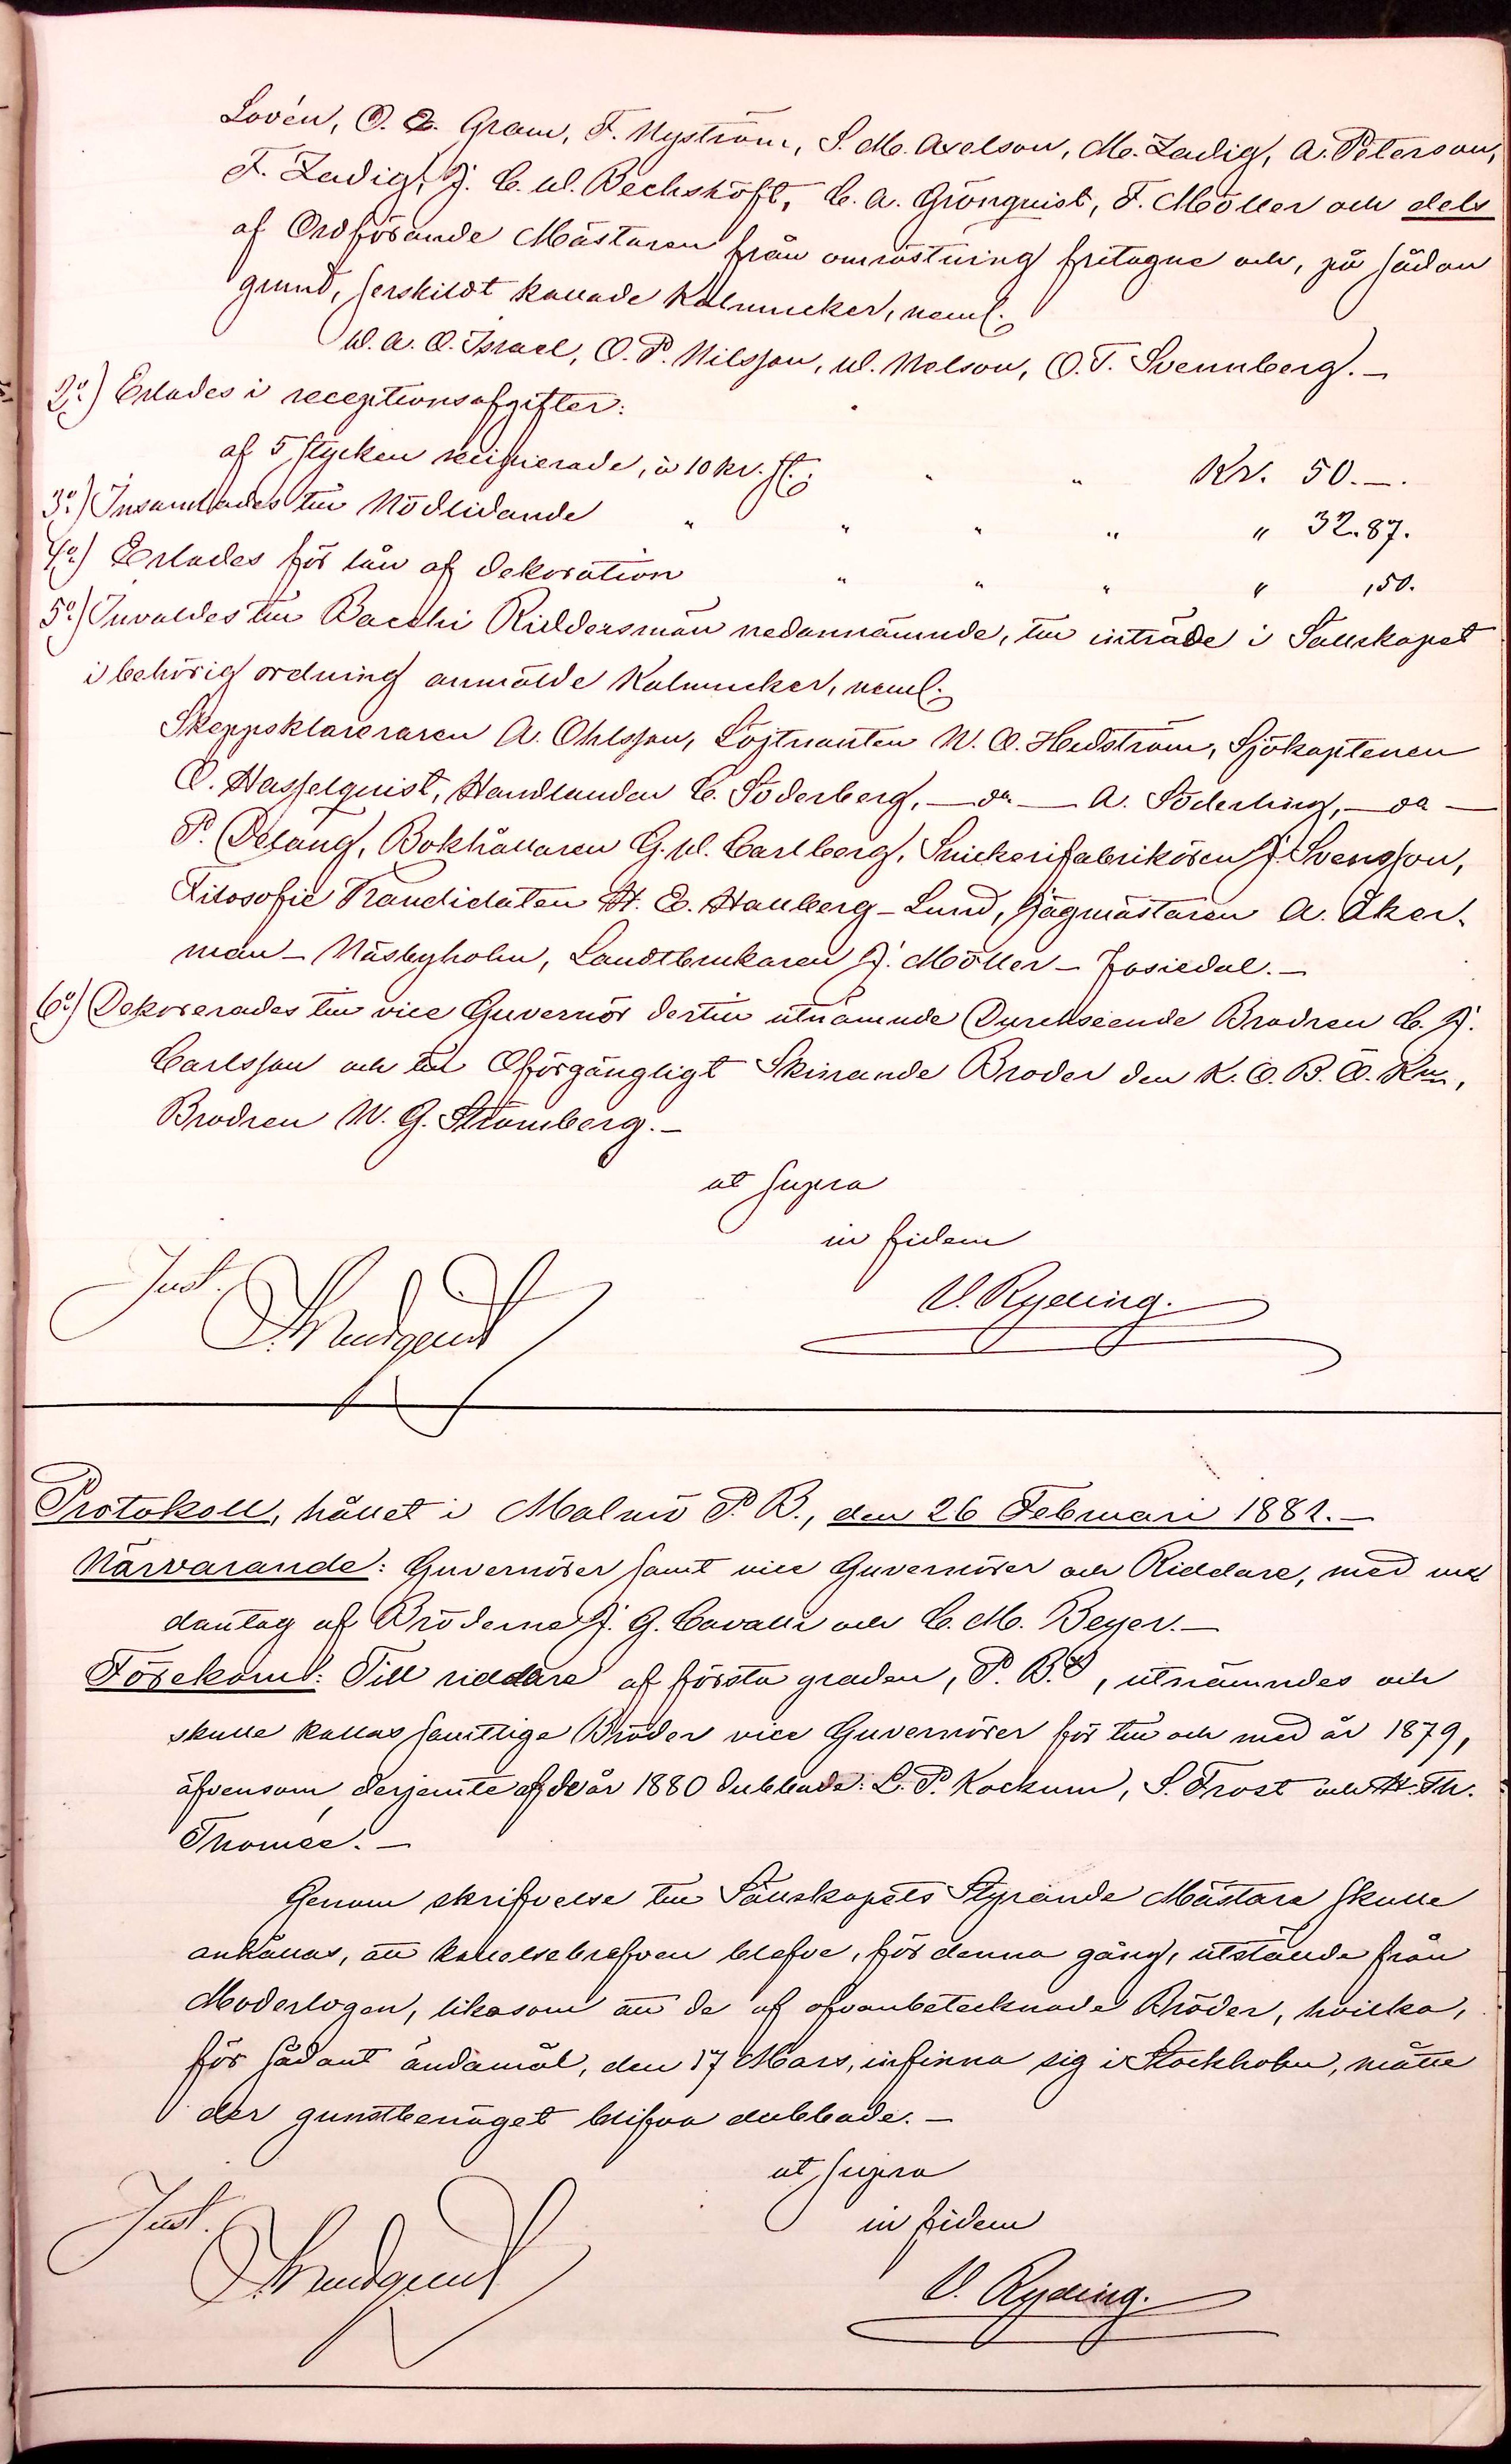 Lovén, O. E. Gram, F. Nyström, S. M. Axelson, M. Zadig, A. Peterson,
F. Zadig, J. C. W. Bechshöft, C. A. Grönquist, F. Möller och dels
af Ordförande Mästaren från omröstning fritagne och, på sådan
grund, serskildt kallade Kalmucker, neml.
W. A. O. Israel, O. P. Nilsson, W. Nelson, O. T. Svennberg. —
2o.) Erlades i receptionsafgifter:
af 5 stycken recipierade, à 10 kr. st. " " Kr. 50. —.
3o.) Insamlades till Nödlidande " " " " " 32.87.
4o.) Erlades för lån af dekoration " " " " ,50.
5o.) Invaldes till Bacchi Riddersmän nedannämnde, till inträde i Sällskapet
i behörig ordning anmälde Kalmucker, neml.
Skeppsklareraren A. Ohlsson, Löjtnanten W. O. Hedström, Sjökaptenen
O. Hasselquist, Handlanden C. Söderberg, — do — A. Söderling, — do —
P. Delang, Bokhållaren G. W. Carlberg, Snickerifabrikören J. Svensson,
Filosofie Kandidaten H. E. Hallberg - Lund, Jägmästaren A. Åker-
man - Näsbyholm, Landtbrukaren J. Möller - Fosiedal. —
6o.) Dekorerades till vice Guvernör dertill utnämnde Durchseende Brodren C. J.
Carlsson och till Oförgängligt Skinande Broder den K. O. B. O. K.,
Brodren W. G. Strömberg. —
ut supra
in fidem
Just.
V. Ryding.
Protokoll, hållet i Malmö P. B., den 26 Februari 1882. —
Närvarande: Guvernörer samt vice Guvernörer och Riddare, med un-
dantag af Bröderne J. G. Cavalli och C. M. Beyer. —
Förekom: Till riddare af första graden, P. B., utnämndes och
skulle kallas samtlige Bröder vice Guvernörer för till och med år 1879,
äfvensom derjemte af de år 1880 dubbade: L. P. Kockum, S. Frost och H. Th.
Thomée. —
Genom skrifvelse till Sällskapets Styrande Mästare skulle
anhållas, att kallelsebrefven blefve, för denna gång, utstälde från
Moderlogen, likasom att de af ofvanbetecknade Bröder, hvilka,
för sådant ändamål, den 17 Mars, infinna sig i Stockholm, måtte
der gunstbenäget blifva dubbade. —
ut supra
in fidem
Just.
V. Ryding.